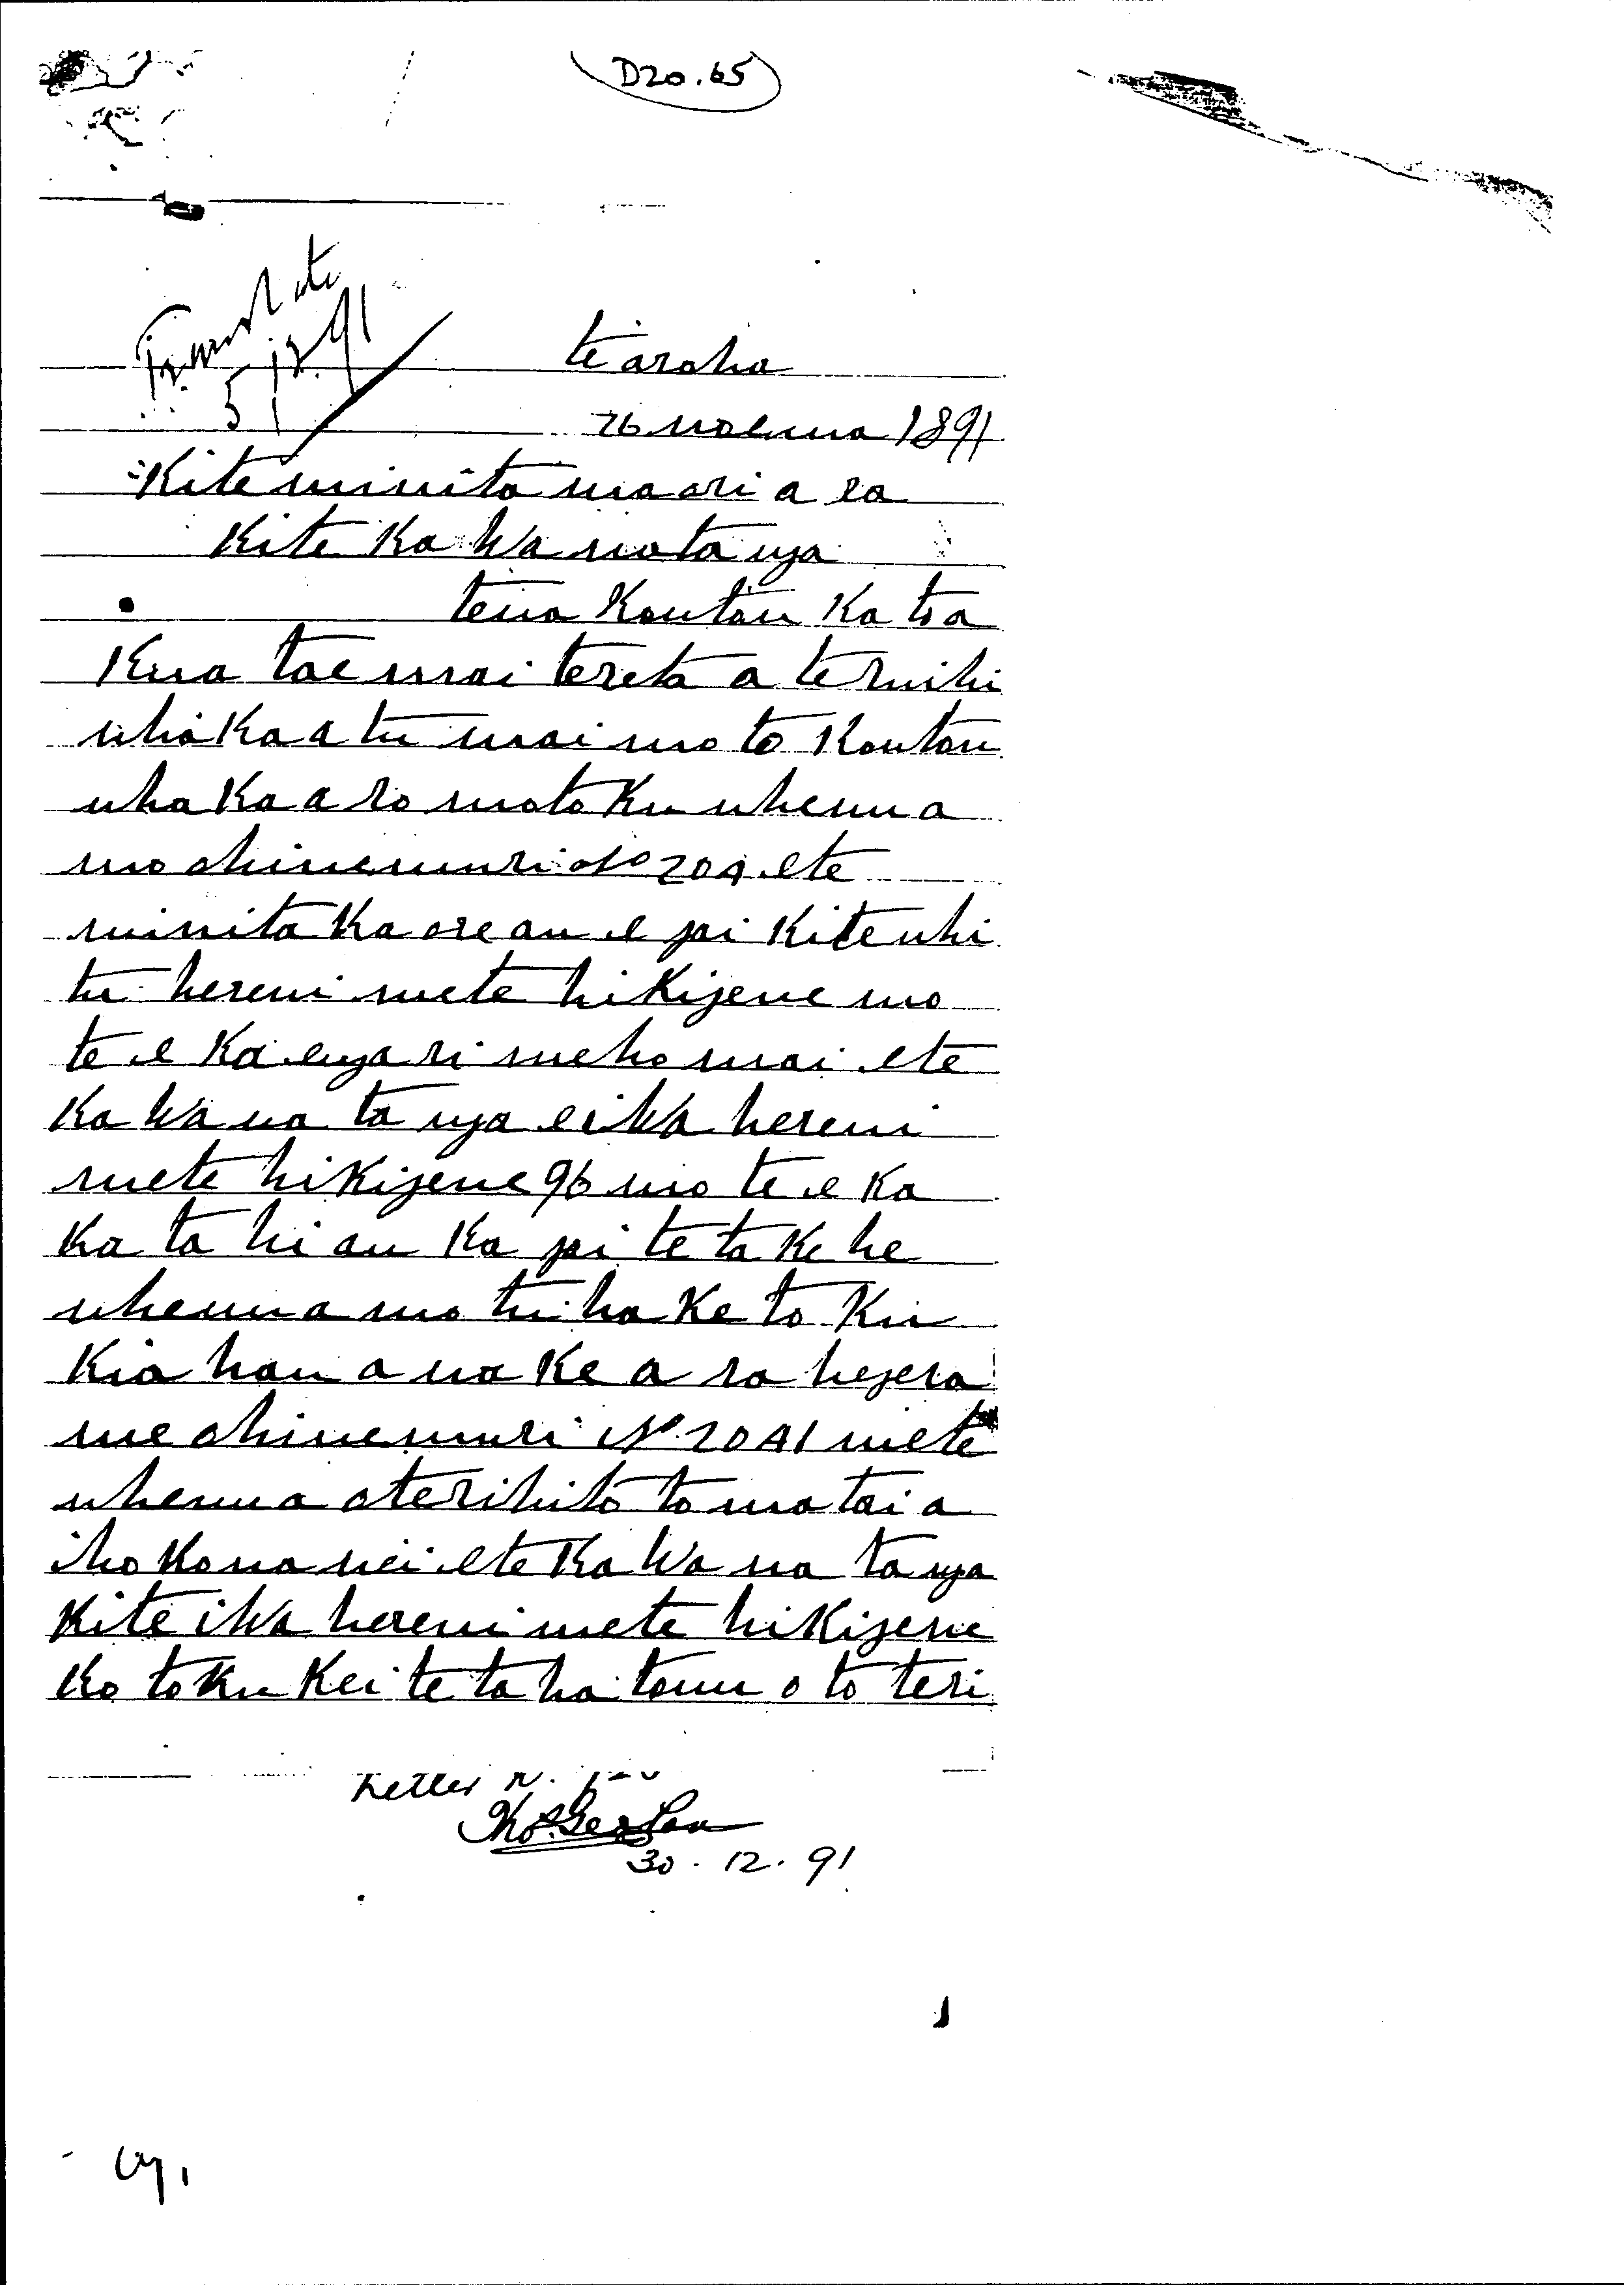 D20.65
Translate
5/12.91
te aroha
26 noema 1891
Kite minita maori a ra
Kite Ka Wa nata nga
tena Koutou Ka toa
Kua tae mai tereta a te ruihi
whaKa a tu mai mo to Koutou
wha Ka a ro moto Ku whenua
mo ohinemuri No 20A ete
minita Ka ore au e pai Kite whi
tu hereni mete hiKipene mo
te e Ka engari me ho mai ete
Ka Wa na ta nga e iWa hereni
mete hiKipene 96 mo te e Ka
Ka ta hi au Ka pai te ta Ke he
whenua mo tu ha Ke to Ku
Kia hau a na Ke a ra hepera
me ohinemuri No 20A1 mete
whenua o terihito to matai a
iho Kona nei ete Ka Wa na ta nga
Kite iWa hereni mete hiKipene
Ko to Ku Kei te ta ha tonu o to teri
Letter
30.12.91